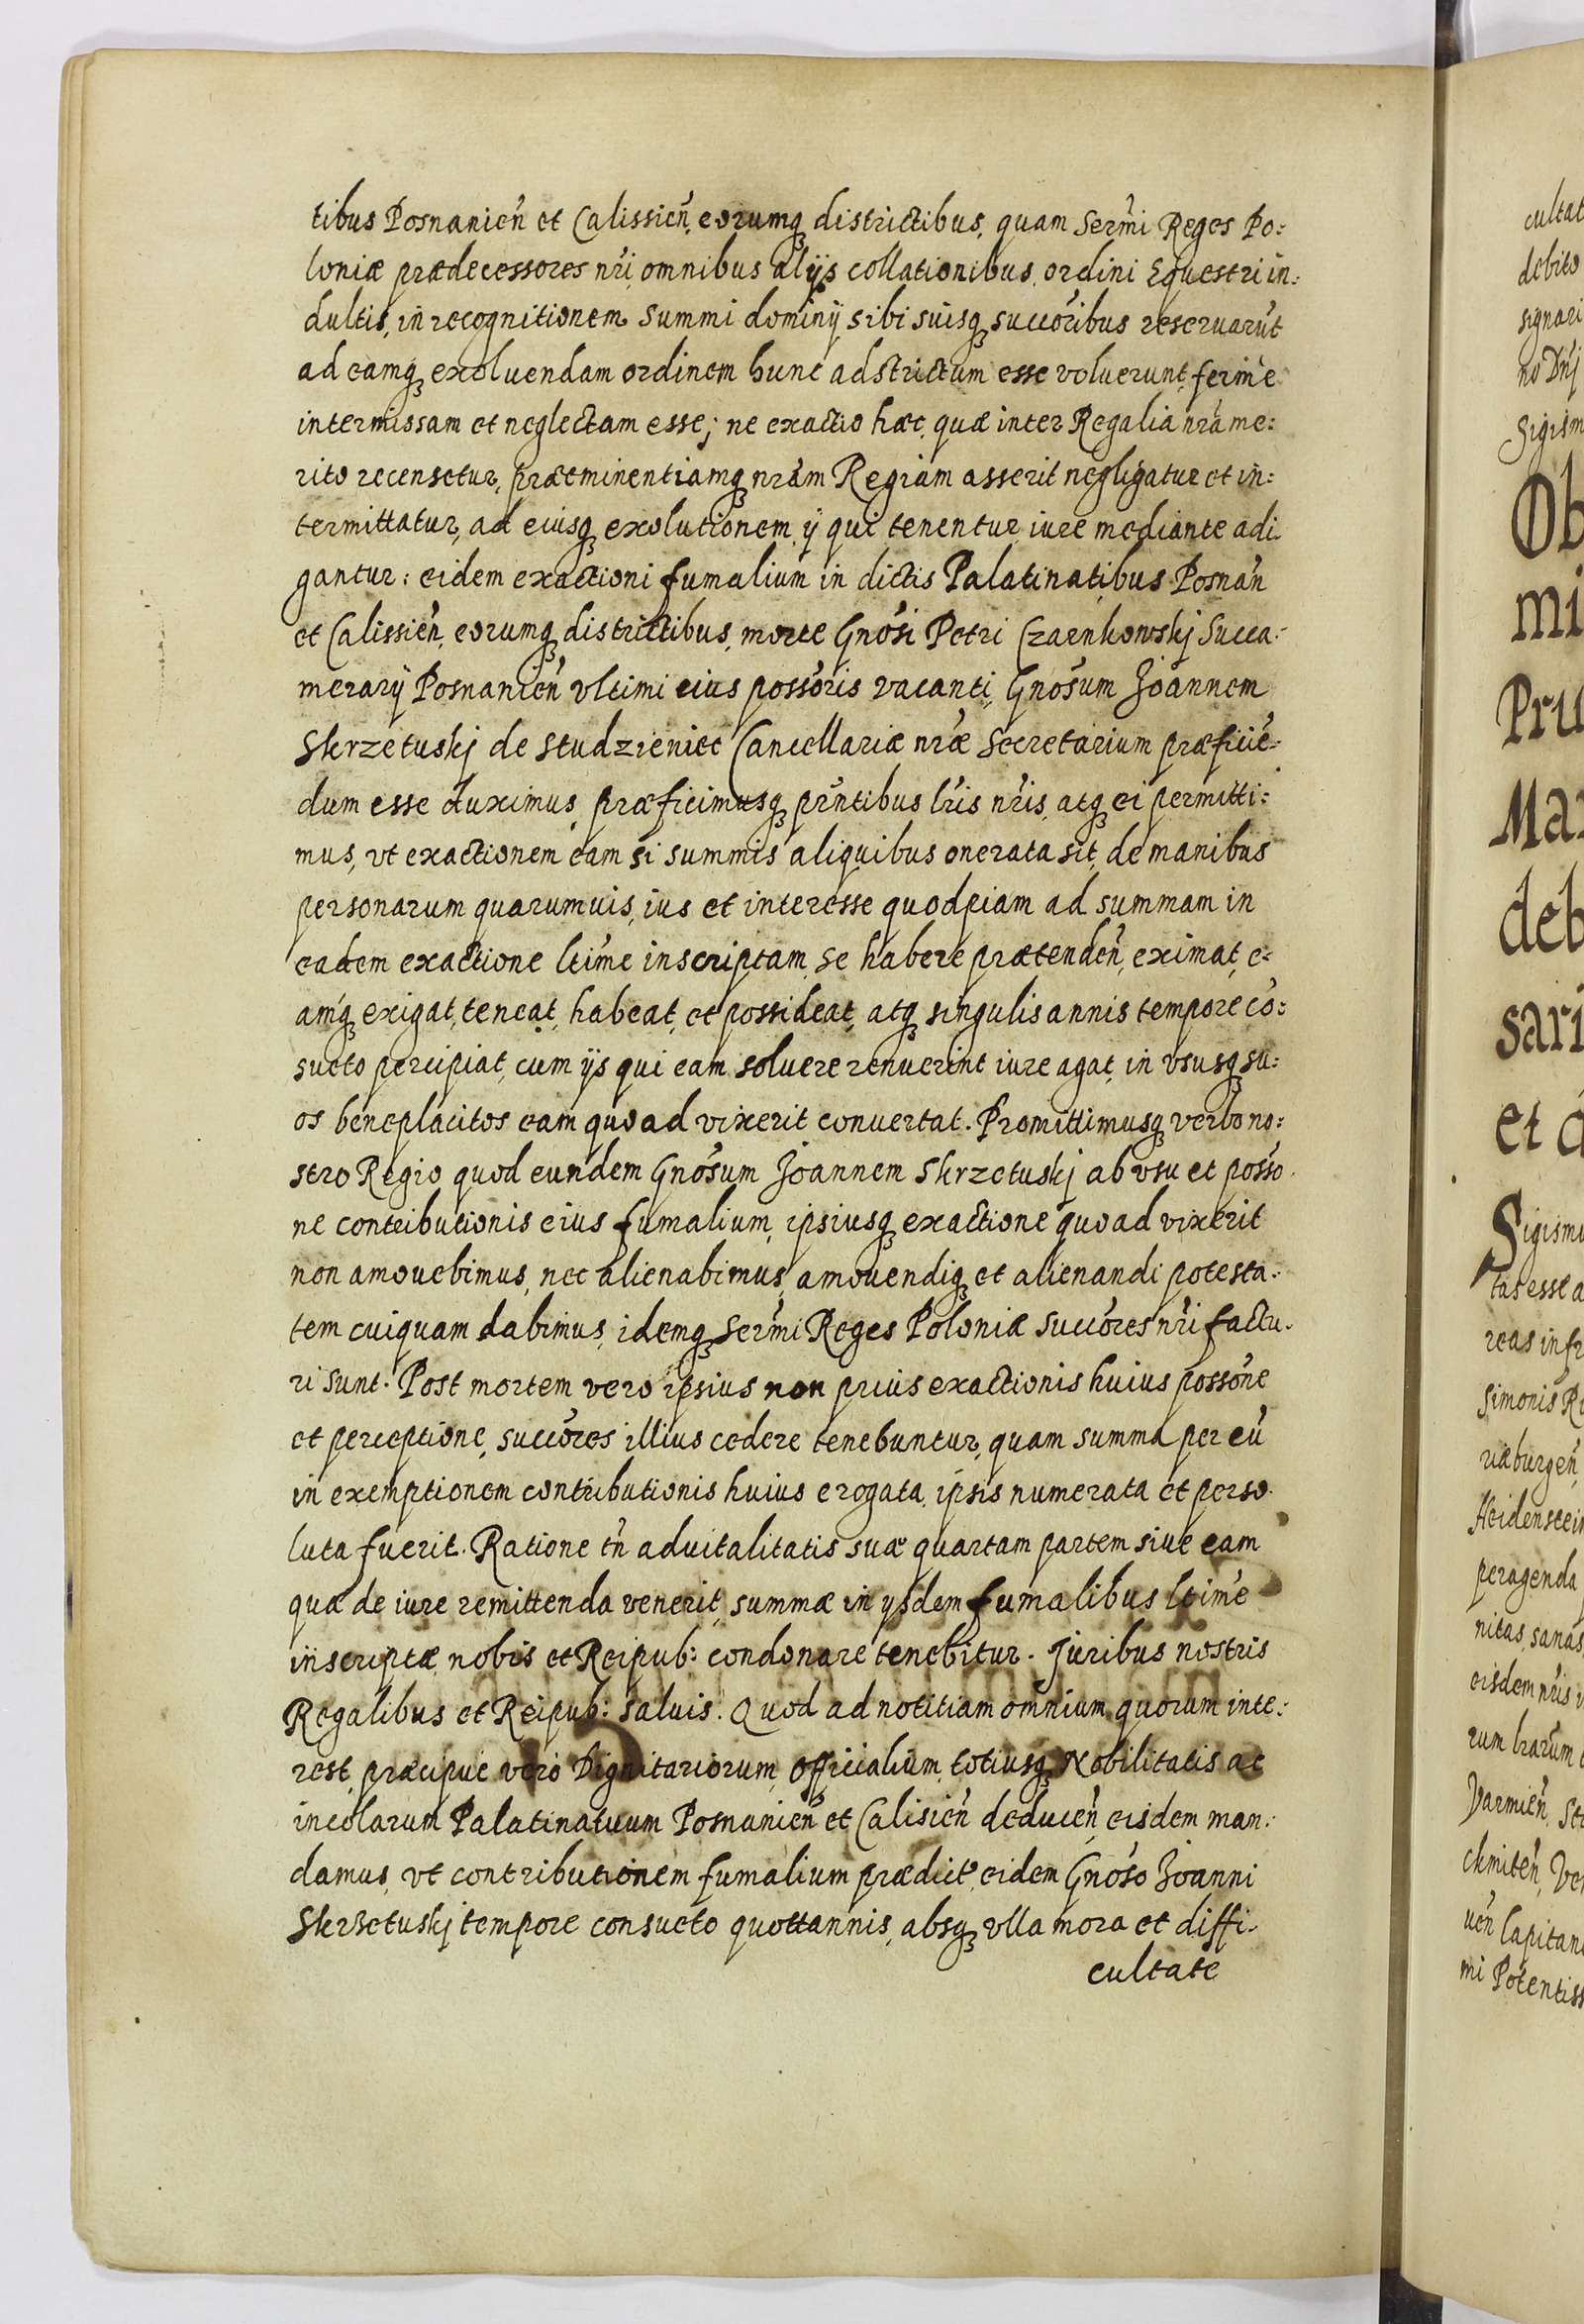 tibus Posnanień et Calissień, eorumq districtibus, quam Sermi Reges Po:
loniæ prædecessores nri, omnibus alijs collationibus, ordini Equestri in:
dultis, in recognitionem summi dominij sibi suisq succoribus reseruarūt
ad eamq exoluendam ordinem hunc adstrictum esse voluerunt, ferme
intermissam et neglectam esse; ne exactio hæc, quæ inter Regalia nra me:
rito recensetur, præeminentiamq nram Regiam asserit negligatur et in:
termittatur, ad eiusq exolutionem ij qui tenentur iure mediante adi
gantur: eidem exactioni fumalium in dictis Palatinatibus Posnań
et Calissień, eorumq districtibus, morte Gnosi Petri Czarnkowskj Succa:
merarij Posnanień vltimi eius possoris vacanti, Gnosum Joannem
Skrzetuskj de Studzieniec Cancellariæ nræ Secretarium præficie:
dum esse duximus, præficimusq prntibus lris nris, atq ei permitti:
mus, vt exactionem eam si summis aliquibus onerata sit, de manibus
personarum quarumuis, ius et interesse quodpiam ad summam in
eadem exactione ltime inscriptam se habere prætendeń, eximat, e:
amq exigat, teneat, habeat, et possideat, atq singulis annis tempore cō:
sueto percipiat, cum ijs qui eam soluere renuerint iure agat, in vsusq su:
os beneplacitos eam quoad vixerit conuertat. Promittimusq verbo no:
stro Regio quod eundem Gnosum Joannem Skrzetuskj ab vsu et posso
ne contributionis eius fumalium, ipsiusq exactione quoad vixerit
non amouebimus, nec alienabimus, amouendiq et alienandi potesta:
tem cuiquam dabimus, idemq Sermi Reges Poloniæ succores nri factu:
ri sunt. Post mortem vero ipsius non prius exactionis huius possone
et perceptione, succores illius cedere tenebuntur, quam summa per eū
in exemptionem contributionis huius erogata, ipsis numerata et perso:
luta fuerit. Ratione tń aduitalitatis suæ quartam partem siue eam
quæ de iure remittenda venerit, summæ in ijsdem fumalibus ltime
inscriptæ nobis et Reipub: condonare tenebitur. Juribus nostris
Regalibus et Reipub: saluis. Quod ad notitiam omnium quorum inte:
rest, præcipue vero Dignitariorum, Officialium, totiusq Nobilitatis ac
incolarum Palatinatuum Posnanień et Calisień deduceń, eisdem man:
damus, vt contributionem fumalium prædict, eidem Gnoso Joanni
Skrzetuskj tempore consueto quottannis, absq vlla mora et diffi:
cultate
cultat
debito
signari
no Dnj
Sigism
Ob
mi
Pru
Mar
deb
sari
et a
Sigismu
tas esse a
reas infr
Simonis R
riæburgeń
Heidenstein
peragenda
nitas, sanas
eisdem nris v
rum lrarum
Varmień, St
ckmiteń, Ve
ueń Capitan
mi Potentiss